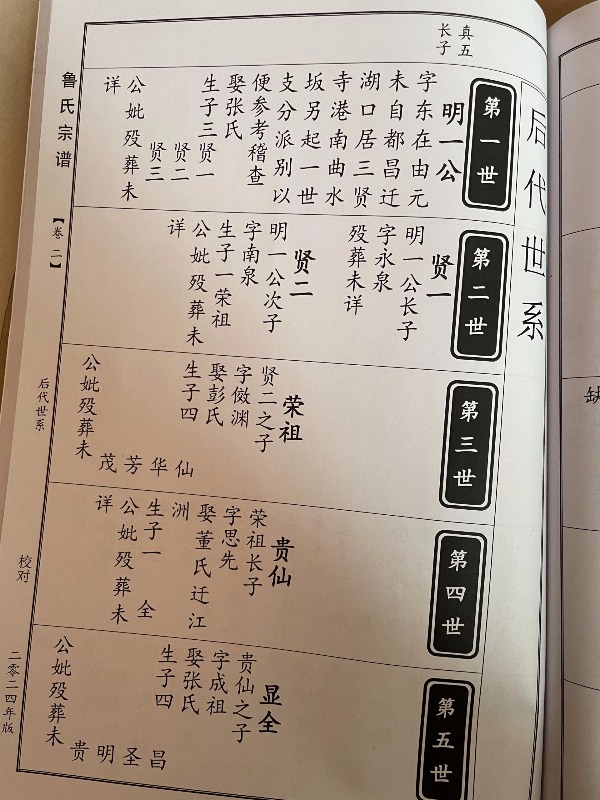 缺
后代世系
真五
长子
第一世
明一公
字东在由元
未自都昌迁
湖口居三贤
寺港南曲水
坂另起一世
支分派别以
便参考稽查
娶张氏
生子三贤一
贤二
贤三
公妣殁葬未
详
第二世
贤一
明一公长子
字永泉
殁葬未详
贤二
明一公次子
字南泉
生子一荣祖
公妣殁葬未
详
第三世
荣祖
贤二之子
字傚渊
娶彭氏
生子四
仙
华
芳
茂
公妣殁葬未
第四世
贵仙
荣祖长子
字思先
娶董氏迁江
洲
生子一 全
公妣殁葬未
详
第五世
显全
贵仙之子
字成祖
娶张氏
生子四
昌
圣
明
贵
公妣殁葬未
鲁氏宗谱
【卷二】
后代世系
校对
二零二四年版